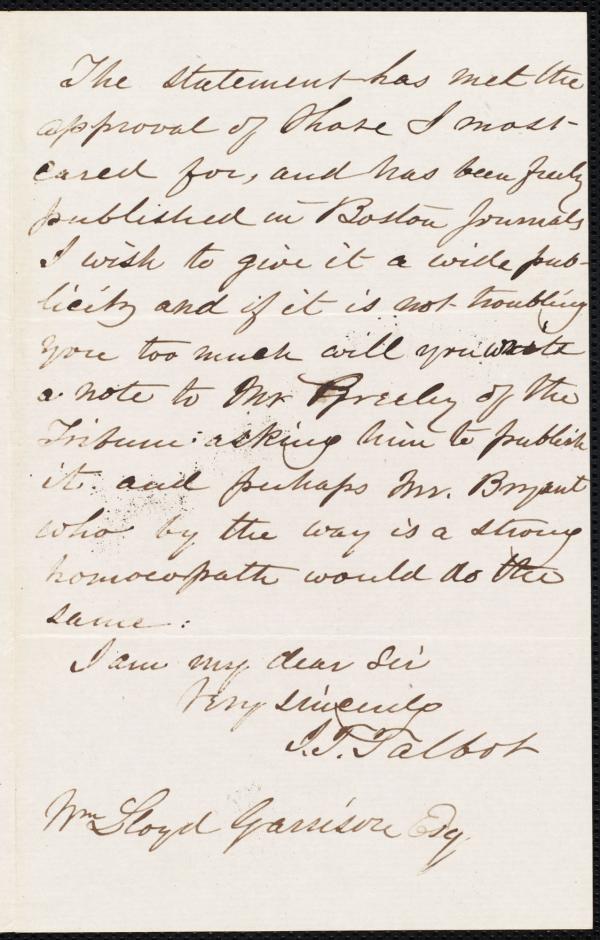 The statement has met the
approval of those I most
cared for, and has been freely
published in Boston Journals
I wish to give it a wide pub-
licity and if it is not troubling
you too much will you write
a note to Mr Greeley of the
Tribune: asking him to publish
it and perhaps Mr. Bryant
who by the way is a strong
homoeopath would do the
same:
I am my dear Sir
Very sincerely
I. T. Talbot
Wm Lloyd Garrison Esq.